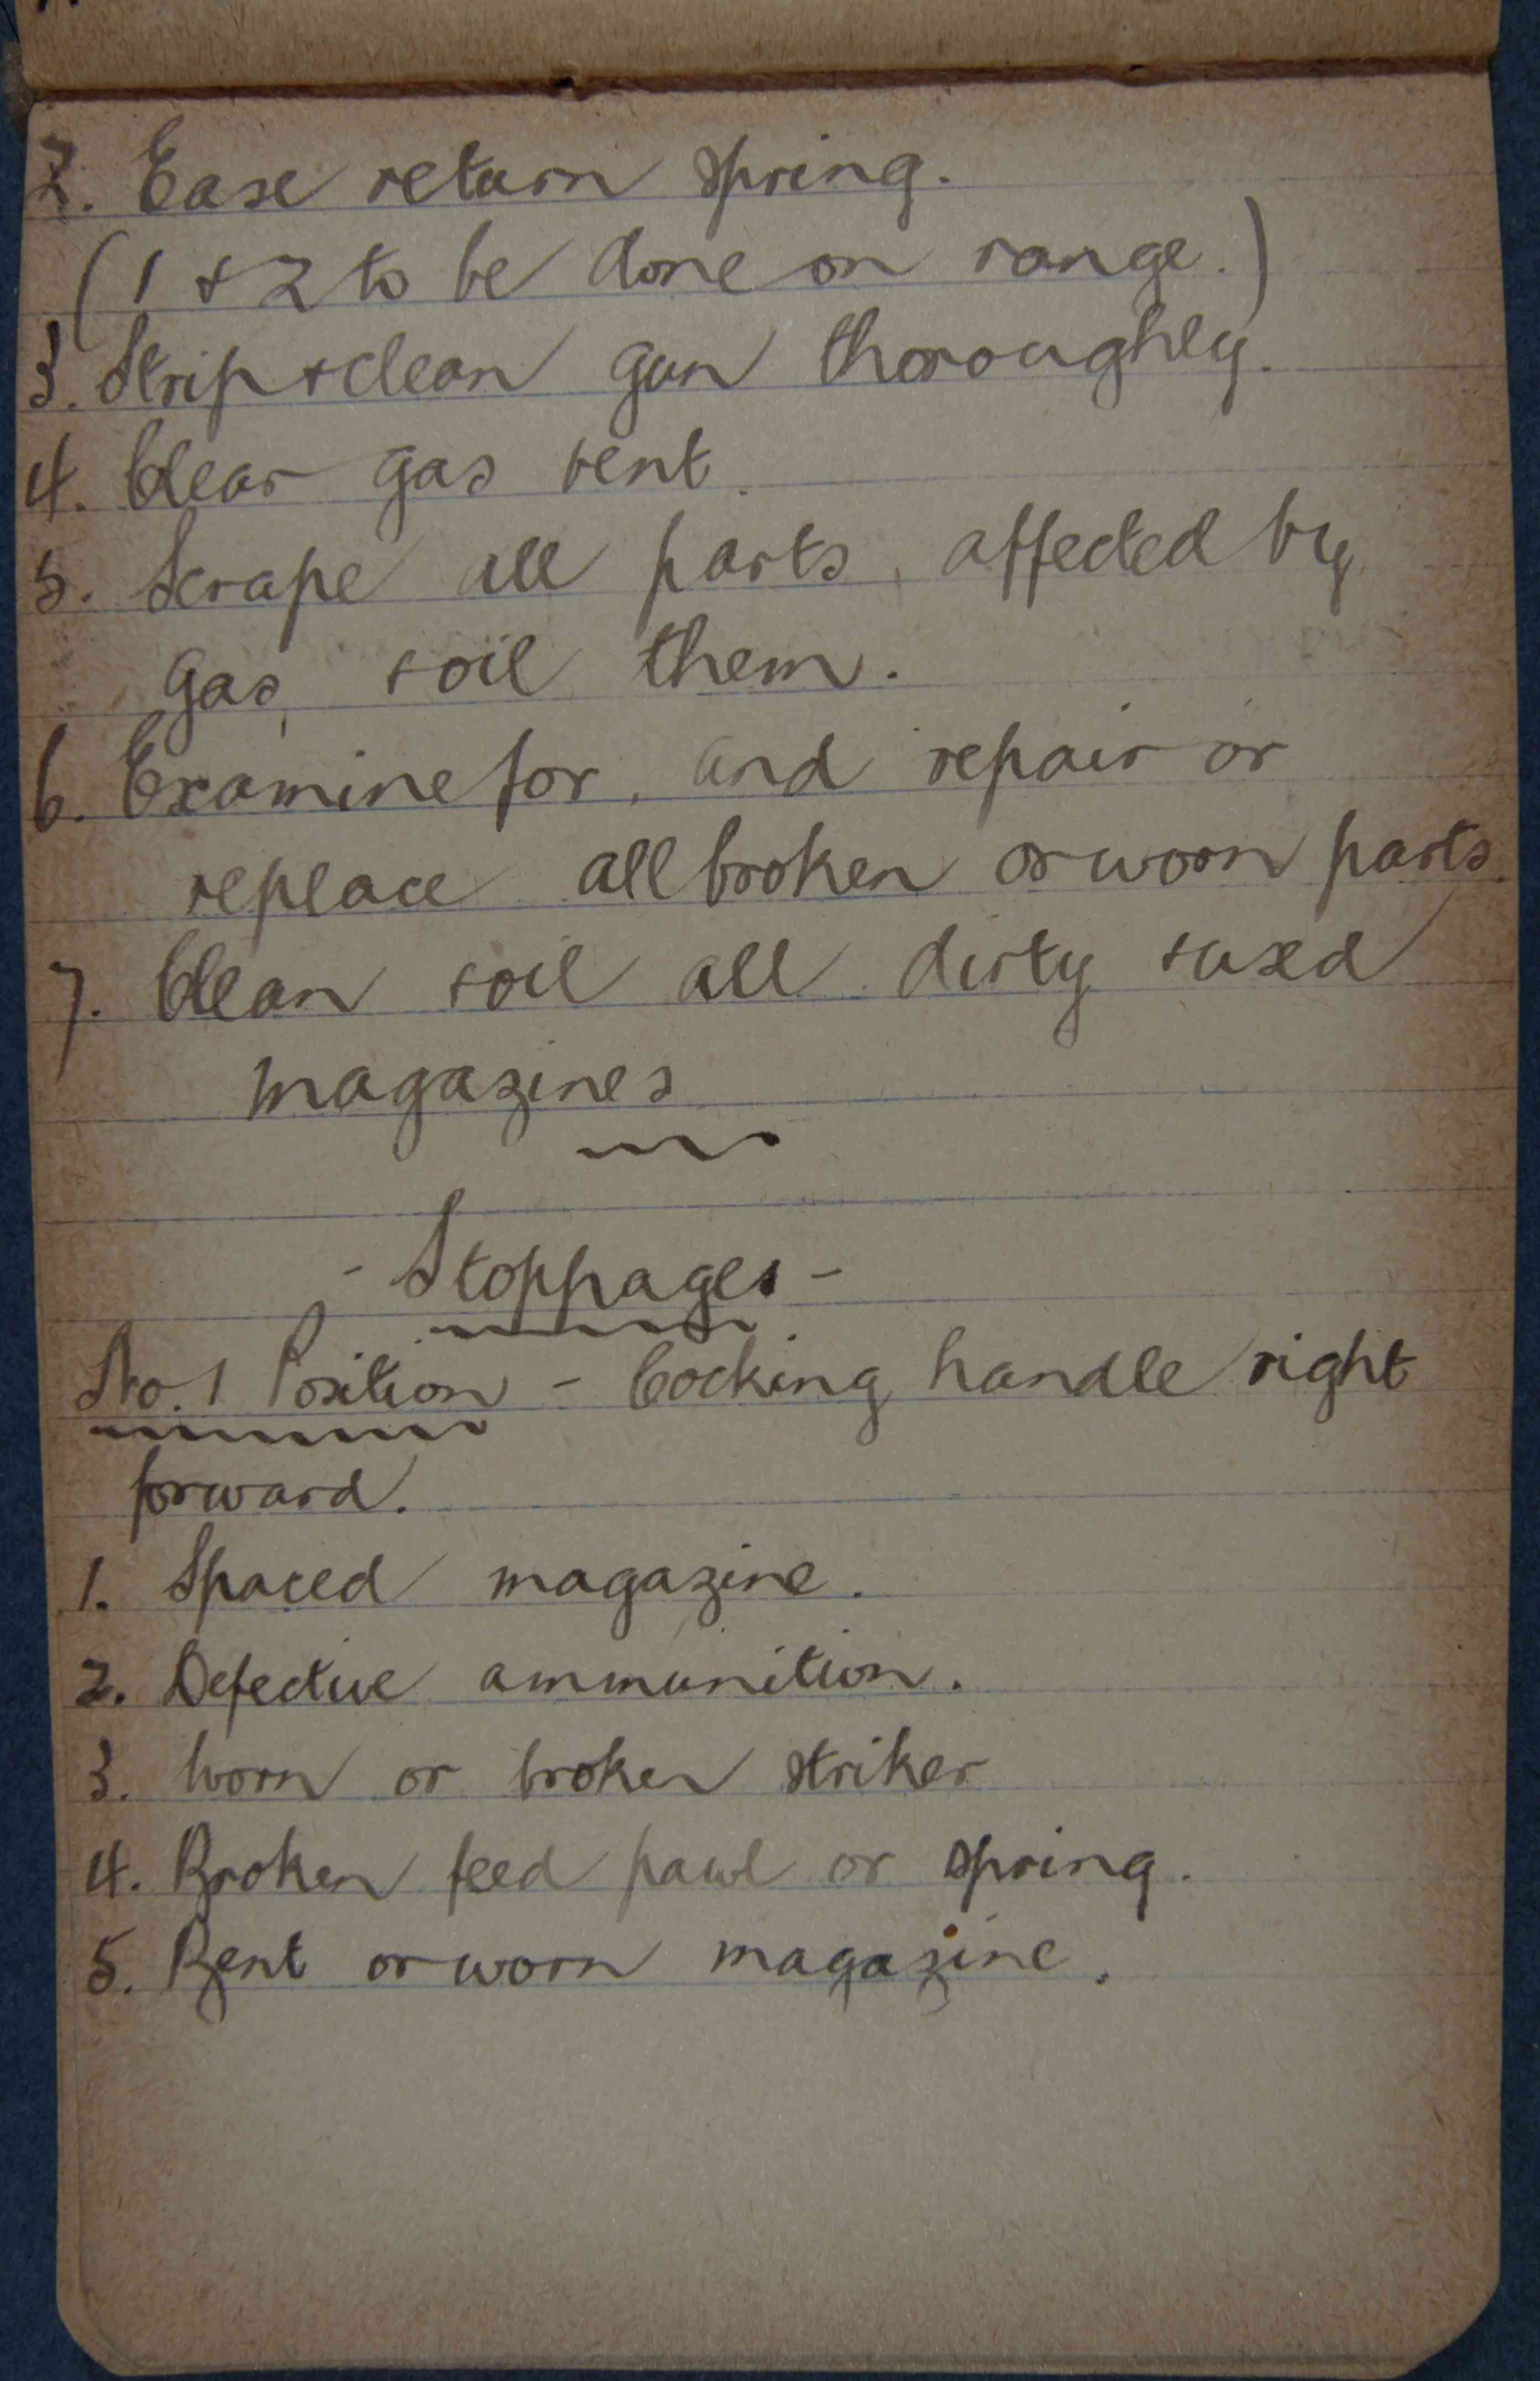 2. Ease return spring.
(1 & 2 to be done on range.)
3. Strip & clean gun thoroughly.
4. Clear gas vent.
5. Scrape all parts, affected by
gas, & oil them.
6. Examine for, and repair or
replace all broken or worn parts.
7. Clean & oil all dirty & used
magazines
- Stoppages -
No. 1 Position - Cocking handle right
forward.
1. Spaced magazine.
2. Defective ammunition.
3. Worn or broken striker
4. Broken feed pawl or spring.
5. Bent or worn magazine.